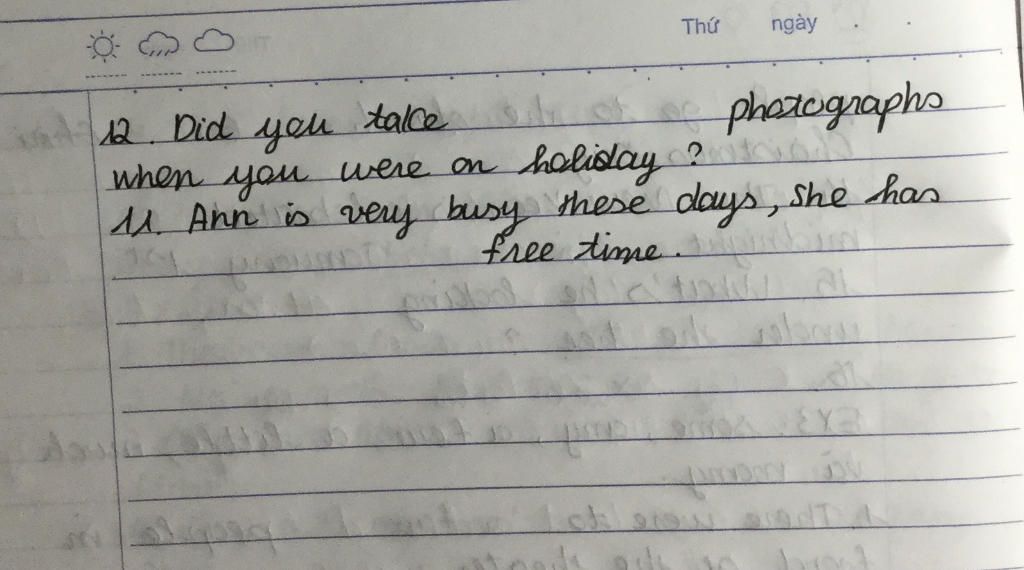 Thứ ngày
12. Did you take photographs
when you were on holiday ?
11. Ann is very busy these days, she has
free time.